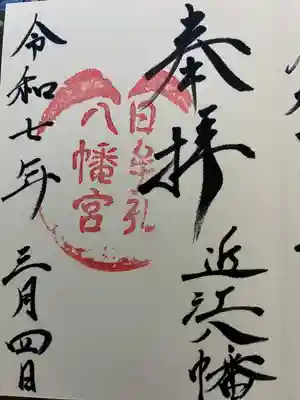 奉拝
近江八幡
日牟礼
八幡宮
令和七年
三月四日